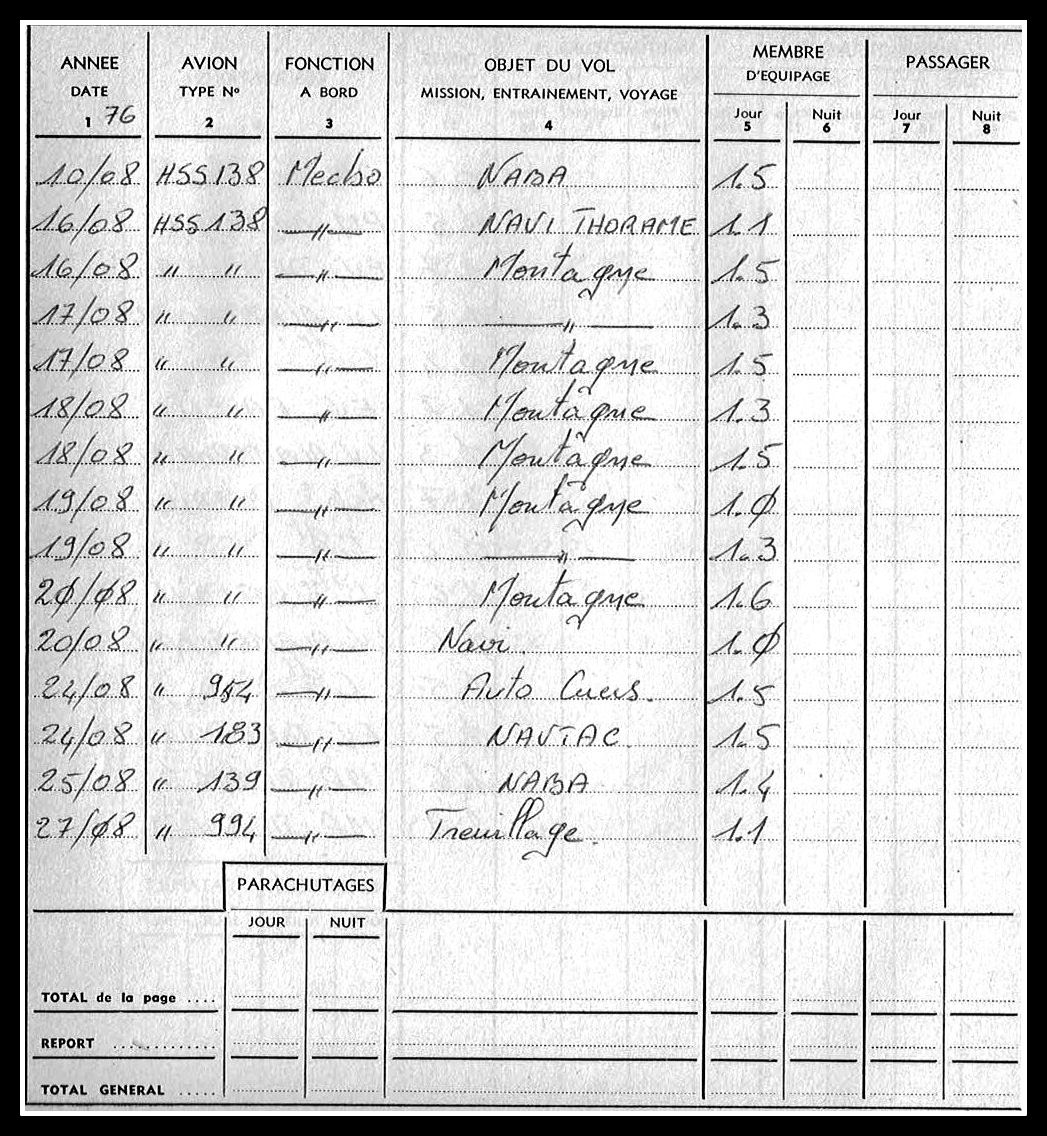 ANNEE AVION FONCTION OBJET DU VOL MEMBRE D'EQUIPAGE PASSAGER
DATE TYPE N° A BORD MISSION, ENTRAINEMENT, VOYAGE Jour Nuit Jour Nuit
1 76 2 3 4 5 6 7 8
10/08 HSS 138 Mecbo NABA 1.5
16/08 HSS 138 —〃— NAVI THORAME 1.1
16/08 〃 〃 —〃— Montagne 1.5
17/08 〃 〃 —〃— —〃— 1.3
17/08 〃 〃 —〃— Montagne 1.5
18/08 〃 〃 —〃— Montagne 1.3
18/08 〃 〃 —〃— Montagne 1.5
19/08 〃 〃 —〃— Montagne 1.Ø
19/08 〃 〃 —〃— —〃— 1.3
2Ø/Ø8 〃 〃 —〃— Montagne 1.6
20/08 〃 〃 —〃— Navi 1.Ø
24/08 〃 —〃— Auto Cuers. 1.5
24/08 〃 183 —〃— NAVTAC 1.5
25/08 〃 139 —〃— NABA 1.4
27/Ø8 〃 994 —〃— Treuillage. 1.1
PARACHUTAGES
JOUR NUIT
TOTAL de la page ....
REPORT ............
TOTAL GENERAL .....